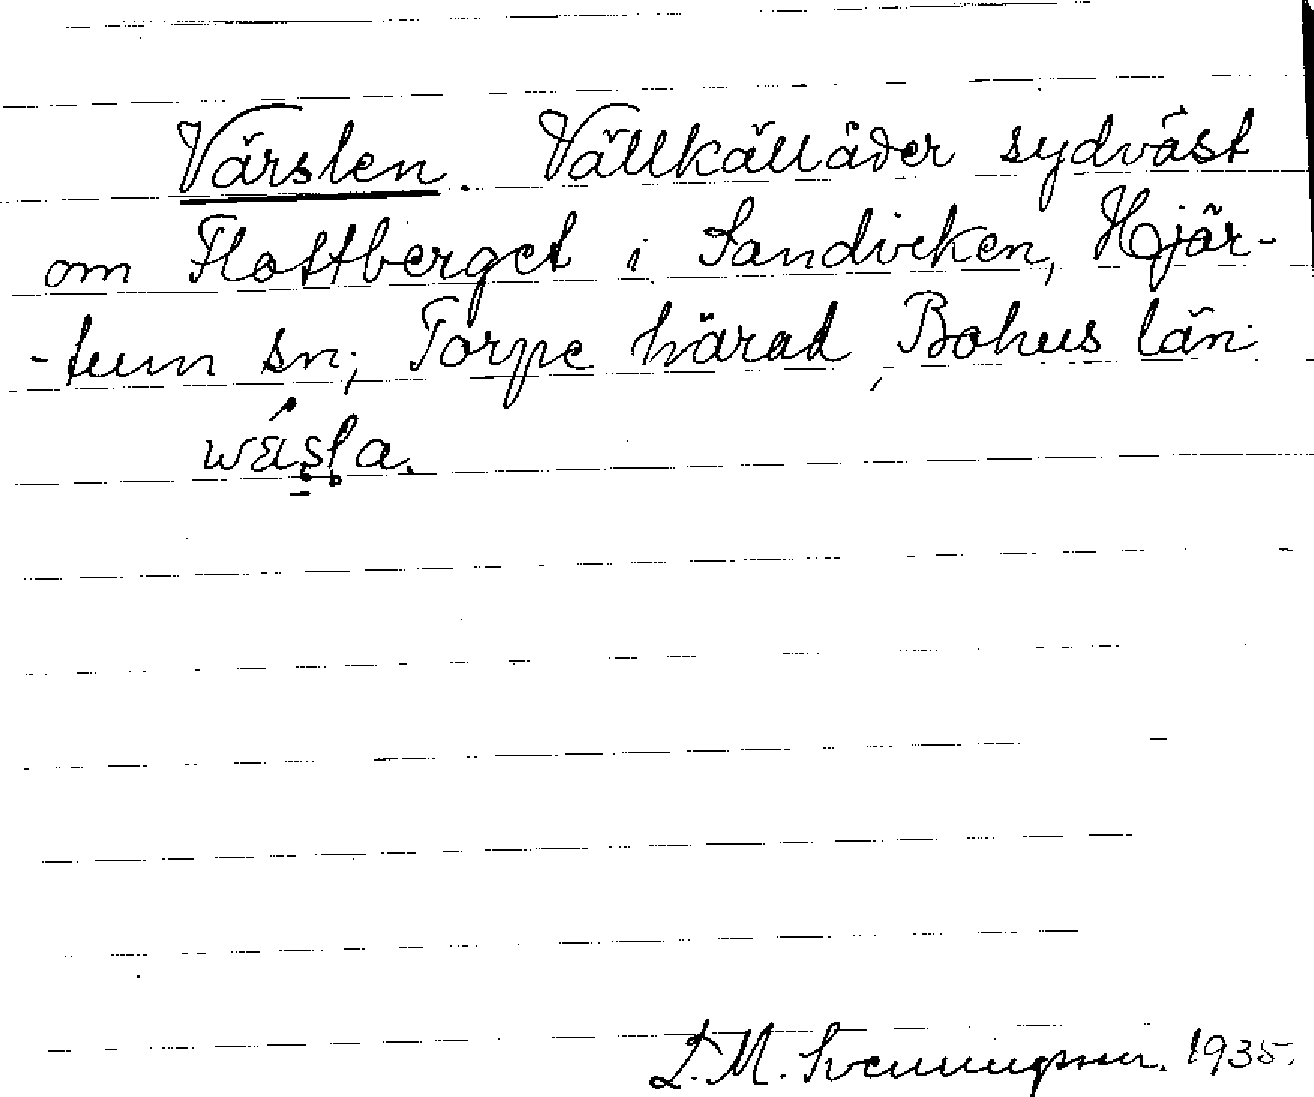 Värslen. Vällkällåder sydväst
om Flottberget i Sandviken, Hjär-
-tum sn; Torpe härad, Bohus län.
L. M. Svenningsson. 1935.